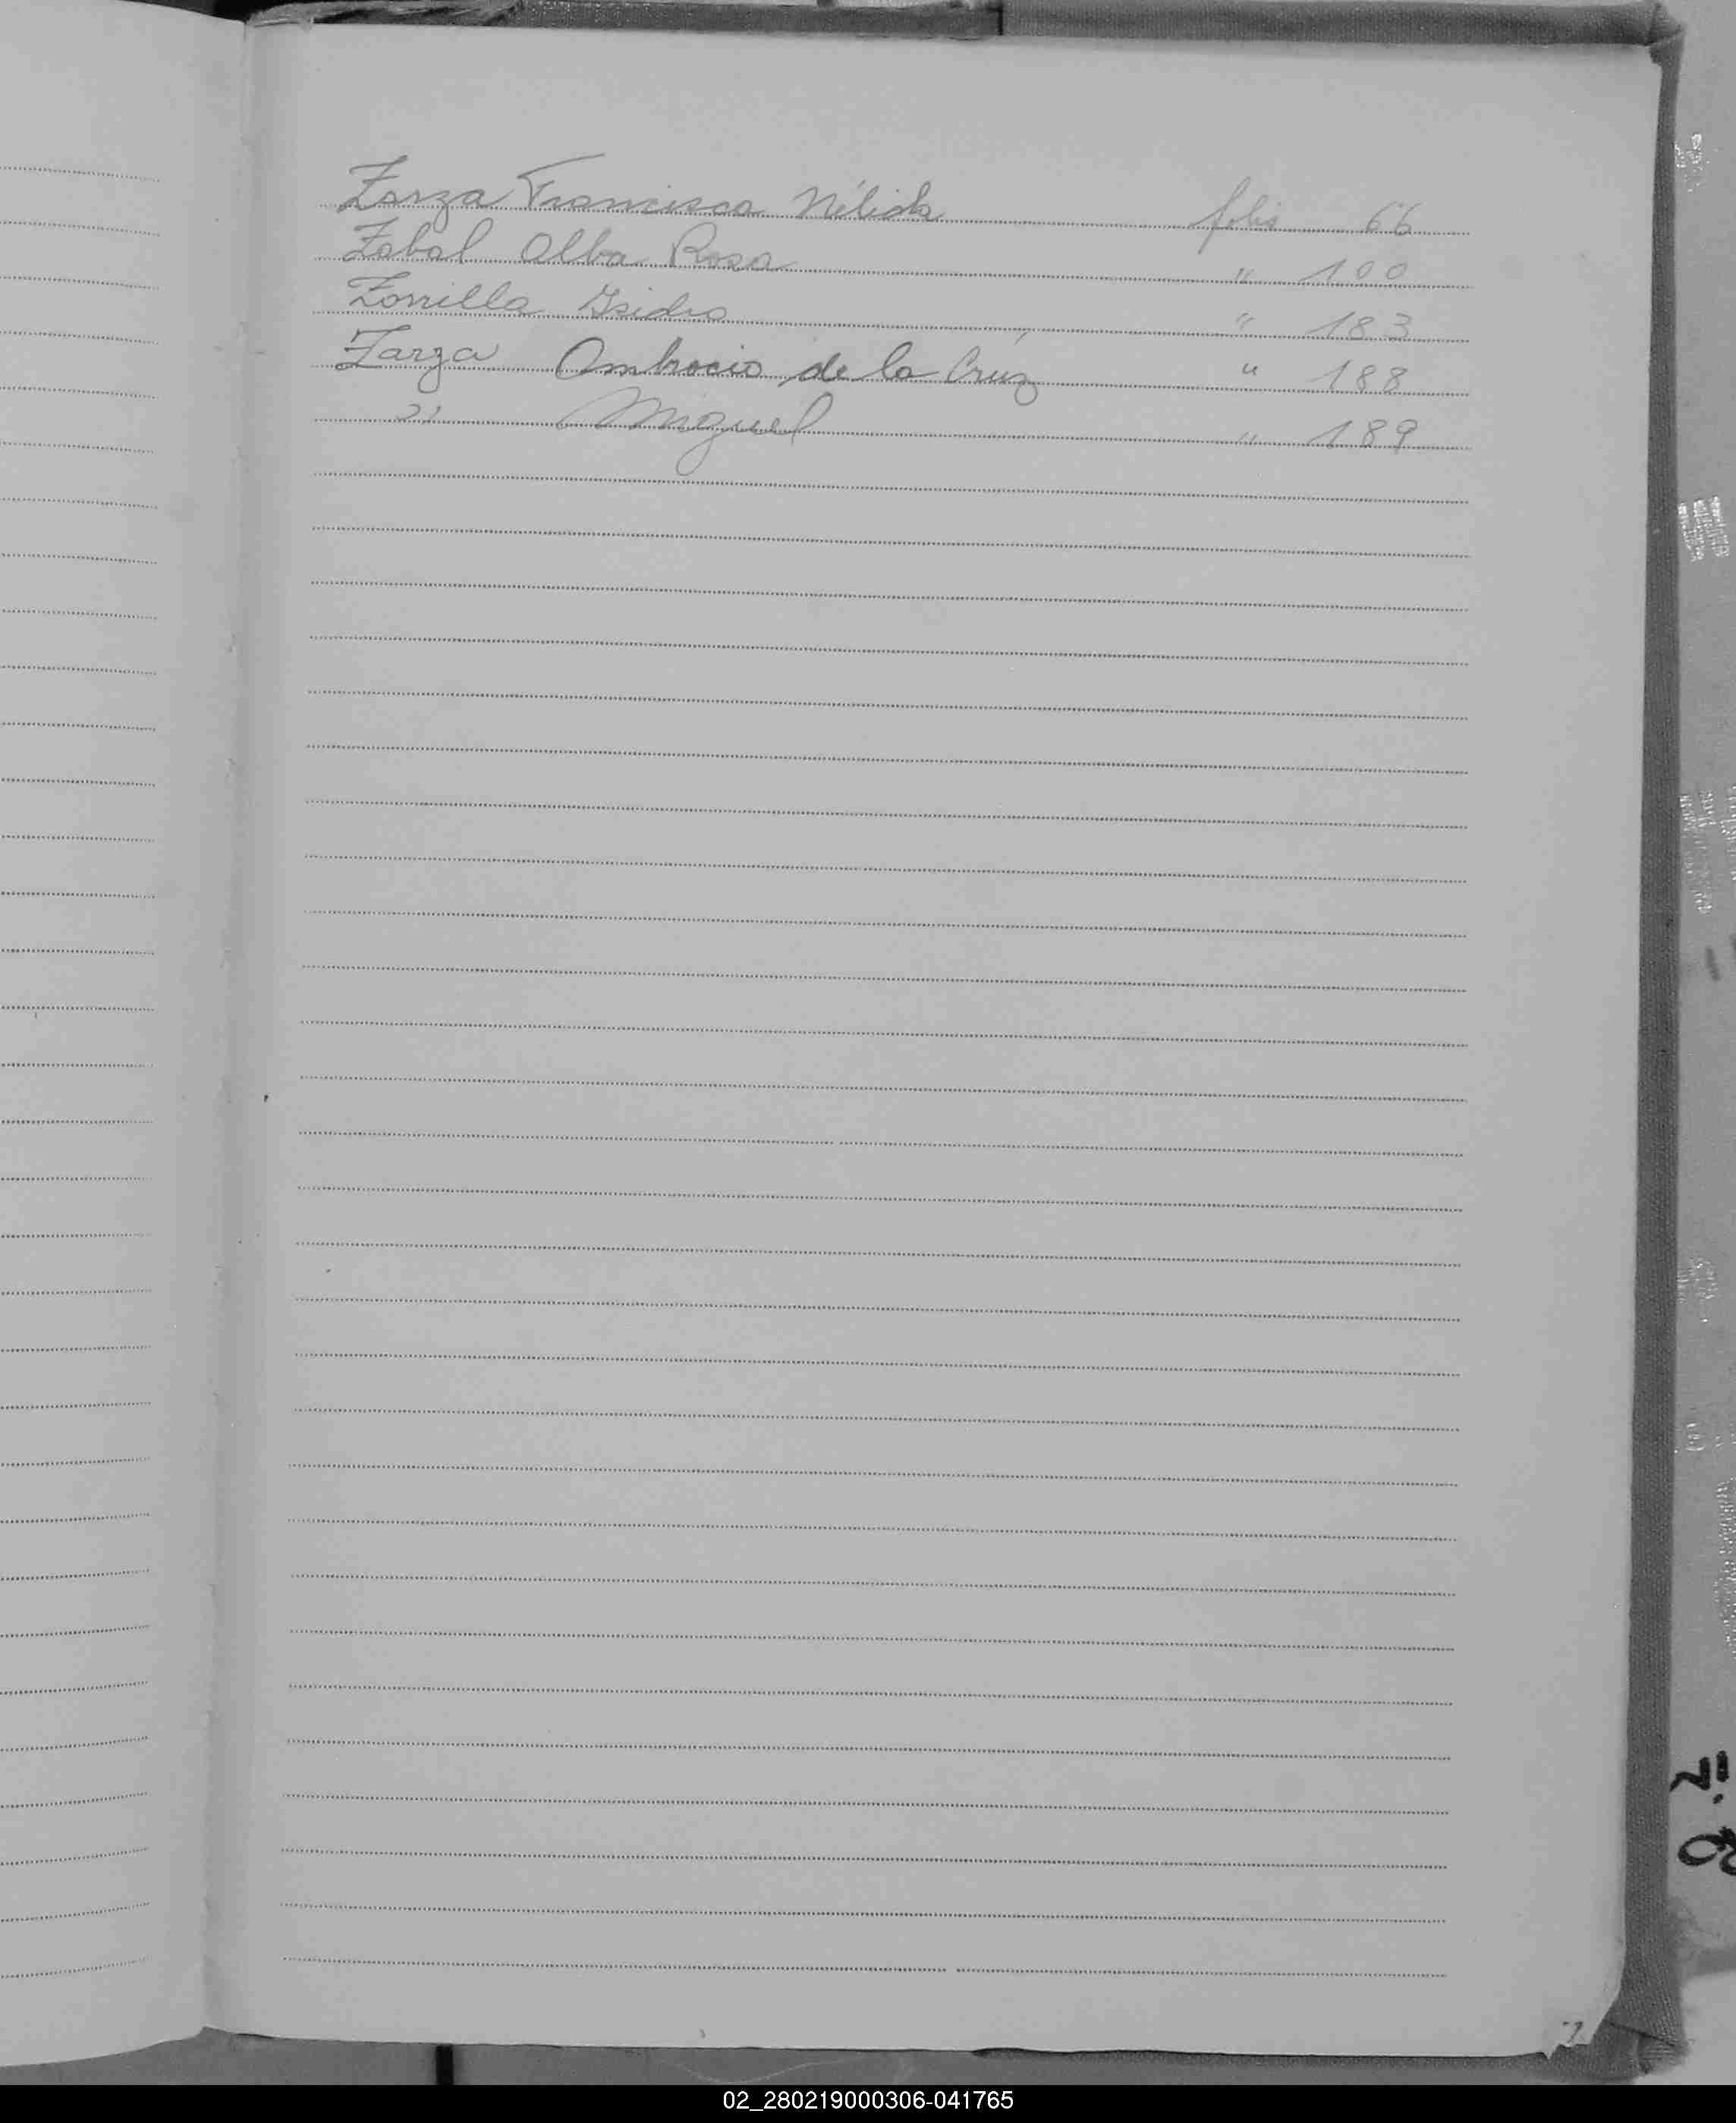 Zarza Francisca Nélida folio 66
Zabal Alba Rosa " 100
Zorrilla Isidro " 183
Zarza Ambrocio de la Crúz " 188
" Miguel " 189
02_280219000306-041765